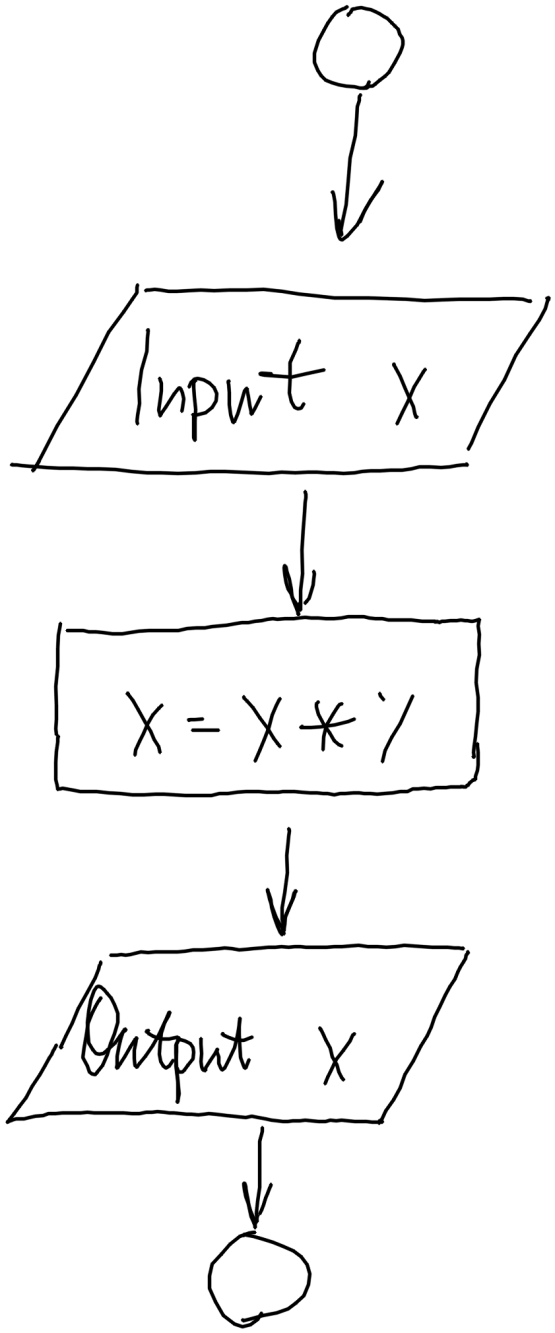 Input X
X = X * Y
Output X